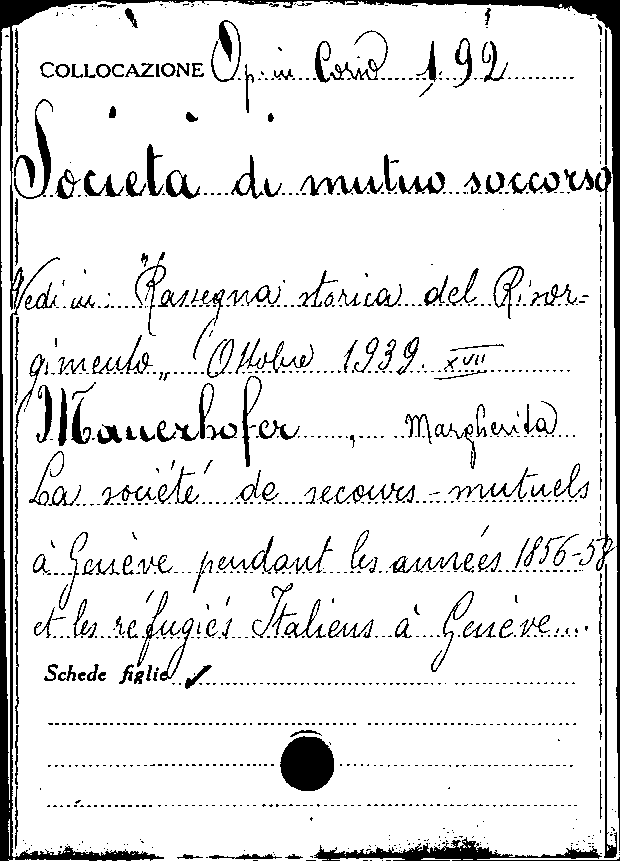 COLLOCAZIONE Op. in Corso 1.92
Società di mutuo soccorso
Vedi in: "Rassegna storica del Risor-
gimento„ Ottobre 1939. XVII
Mauerhofer, Margherita
La société de secours-mutuels
à Genève pendant les années 1856-58
et les réfugiés Italiens à Genève....
Schede figlie ✓